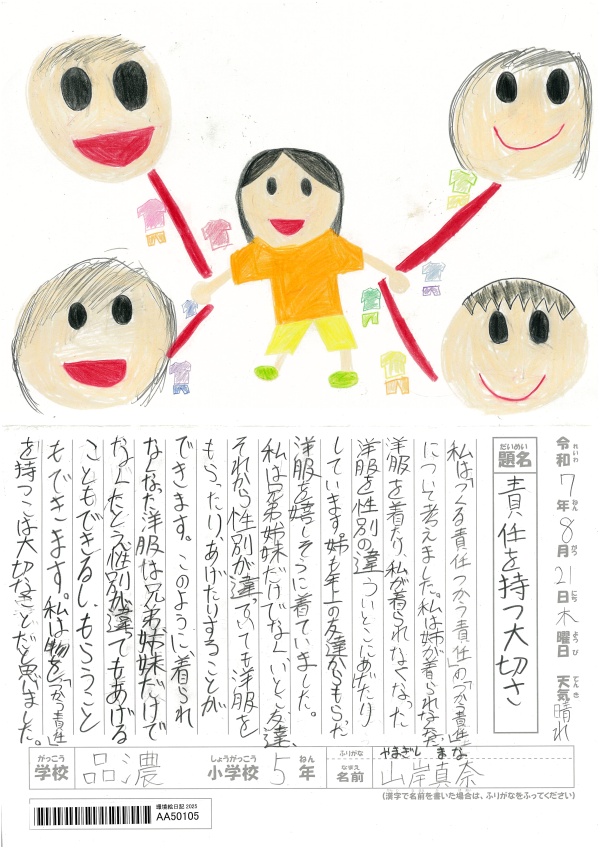 令和7年8月21日木曜日 天気晴れ
れいわ ねん がつ にち ようび てんき
だいめい
題名 責任を持つ大切さ
私は「つくる責任つかう責任」の「つかう責任」
について考えました。私は姉が着られなくなった
洋服を着たり、私が着られなくなった
洋服を性別の違ういとこにあげたり
しています。姉も年上の友達からもらった
洋服を嬉しそうに着ていました。
私は兄弟姉妹だけでなく、いとこ、友達、
それから性別が違っていても洋服を
もらったり、あげたりすることが
できます。このように、着られ
なくなった洋服は兄弟姉妹だけで
なく、たとえ性別が違ってもあげる
こともできるし、もらうこと
もできます。私は物を「つかう責任」
を持つことは大切なことだと思いました。
がっこう しょうがっこう ねん ふりがな やまぎし まな
学校 品濃 小学校 5年 なまえ 名前 山岸真奈
(漢字で名前を書いた場合は、ふりがなをふってください)
環境絵日記 2025
AA50105